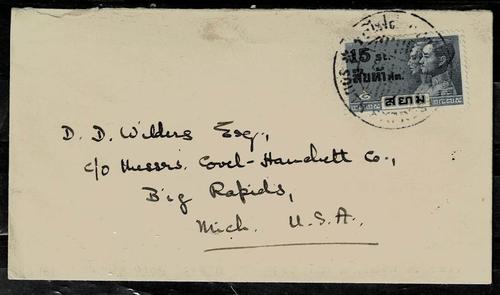 15 St.
สิบห้า สต.
สยาม
D. D. Wilders Esq.,
c/o Messrs. Covel-Hanchett Co.,
Big Rapids,
Mich. U.S.A.